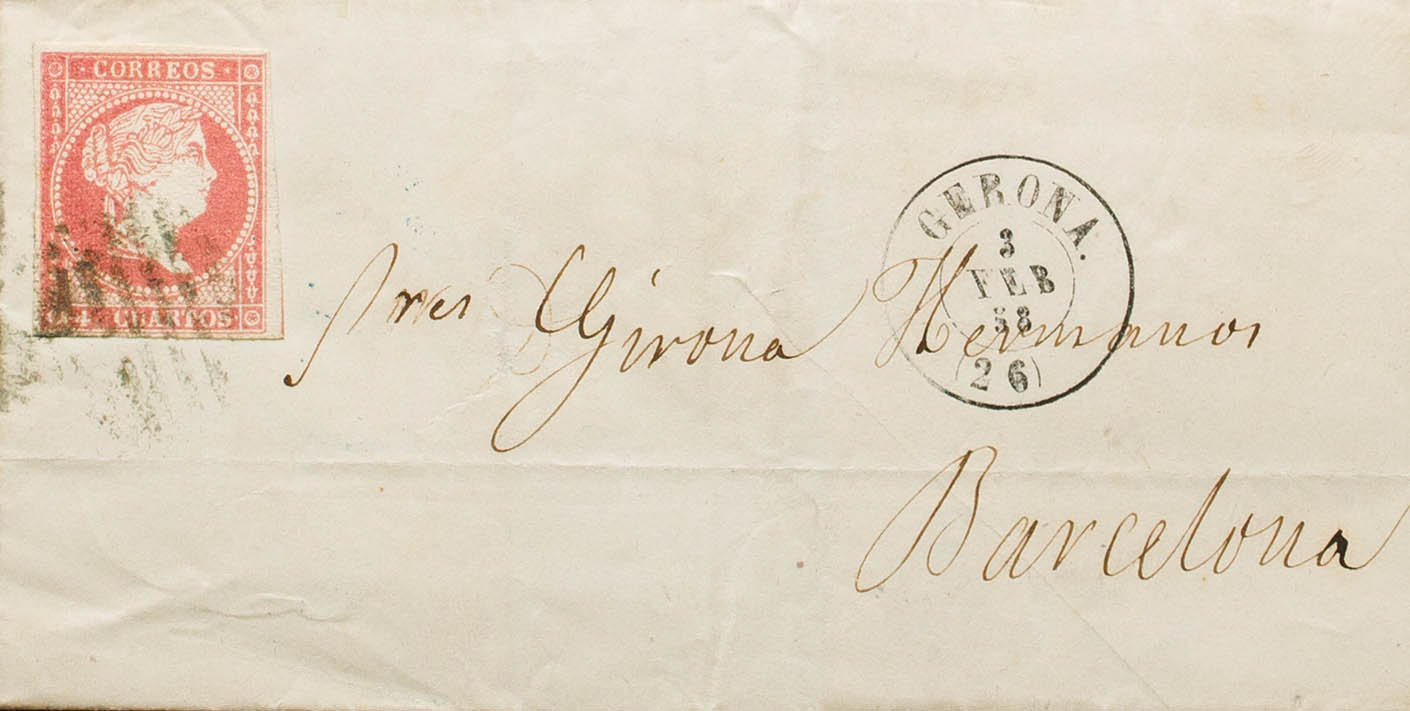 CORREOS
4 CUARTOS
GERONA.
3
FEB
58
(26)
Sres Girona Hermanos
Barcelona